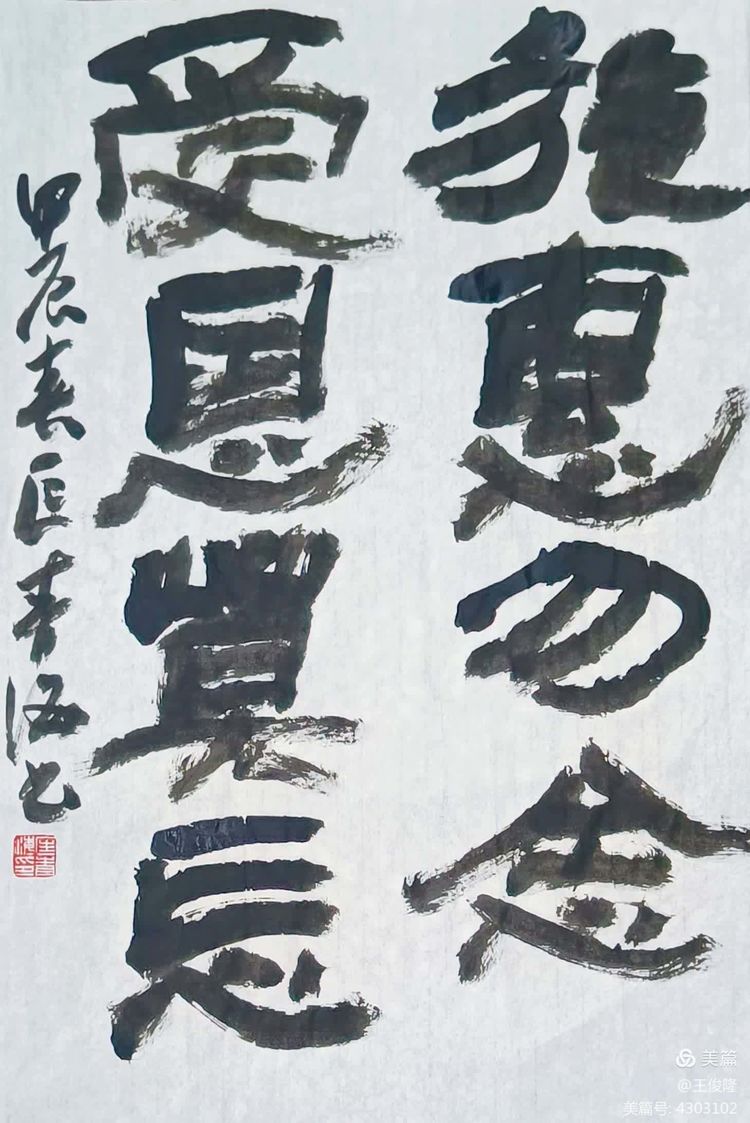 施惠勿念
受恩莫忘
甲辰春匡青海书
美篇
@王俊隆
美篇号: 4303102